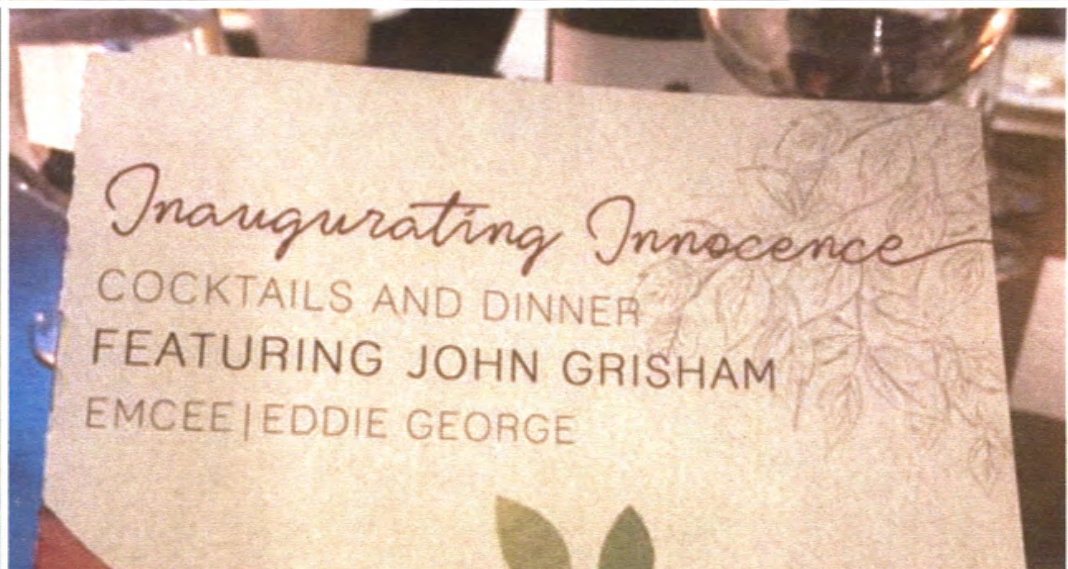 Inaugurating Innocence
COCKTAILS AND DINNER
FEATURING JOHN GRISHAM
EMCEE|EDDIE GEORGE